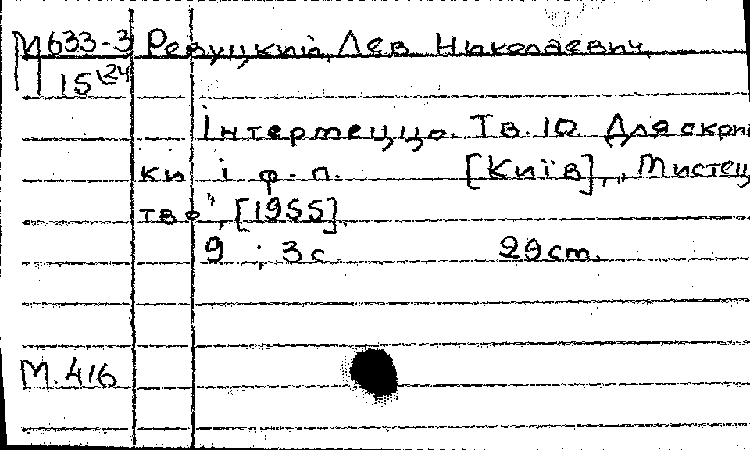 М633-3 Ревуцкий, Лев Николаевич.
15\24
Інтермеццо. Тв. 10 Для скрип
ки і ф.-п. [Київ], „Мистец
тво", [1955].
9 ; 3 с 29 cm.
М.416